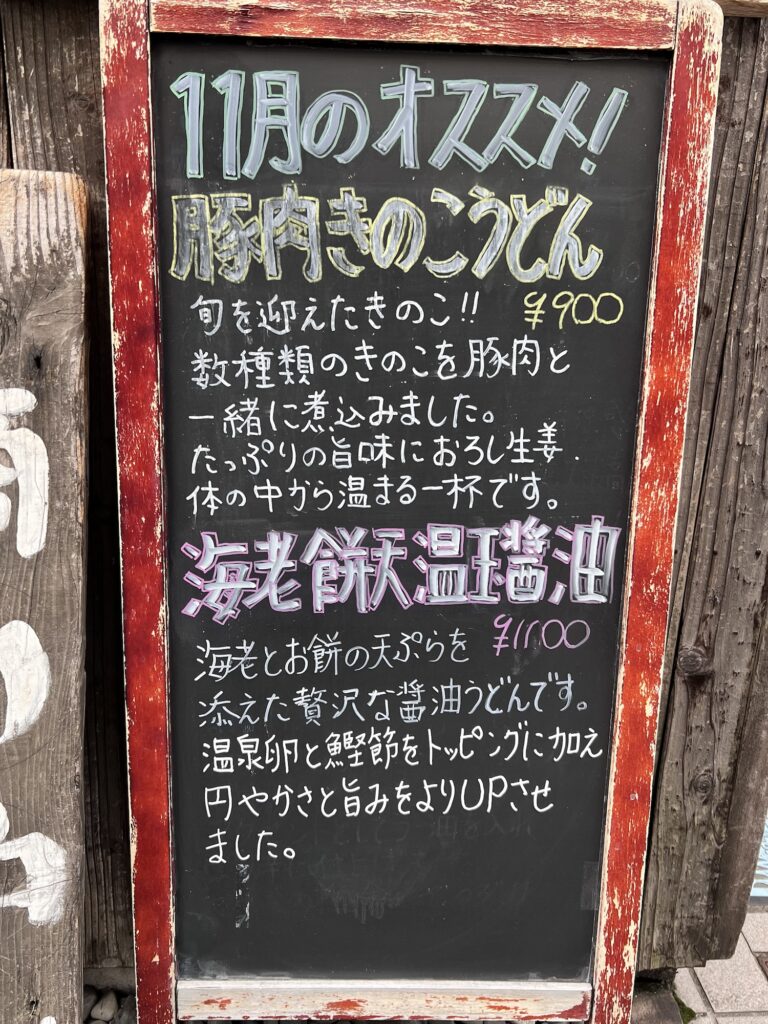 11月のオススメ!
豚肉きのこうどん
¥900
旬を迎えたきのこ!!
数種類のきのこを豚肉と
一緒に煮込みました。
たっぷりの旨味におろし生姜.
体の中から温まる一杯です。
海老餅天温玉醤油
¥1100
海老とお餅の天ぷらを
添えた贅沢な醤油うどんです。
温泉卵と鰹節をトッピングに加え
円やかさと旨みをよりUPさせ
ました。